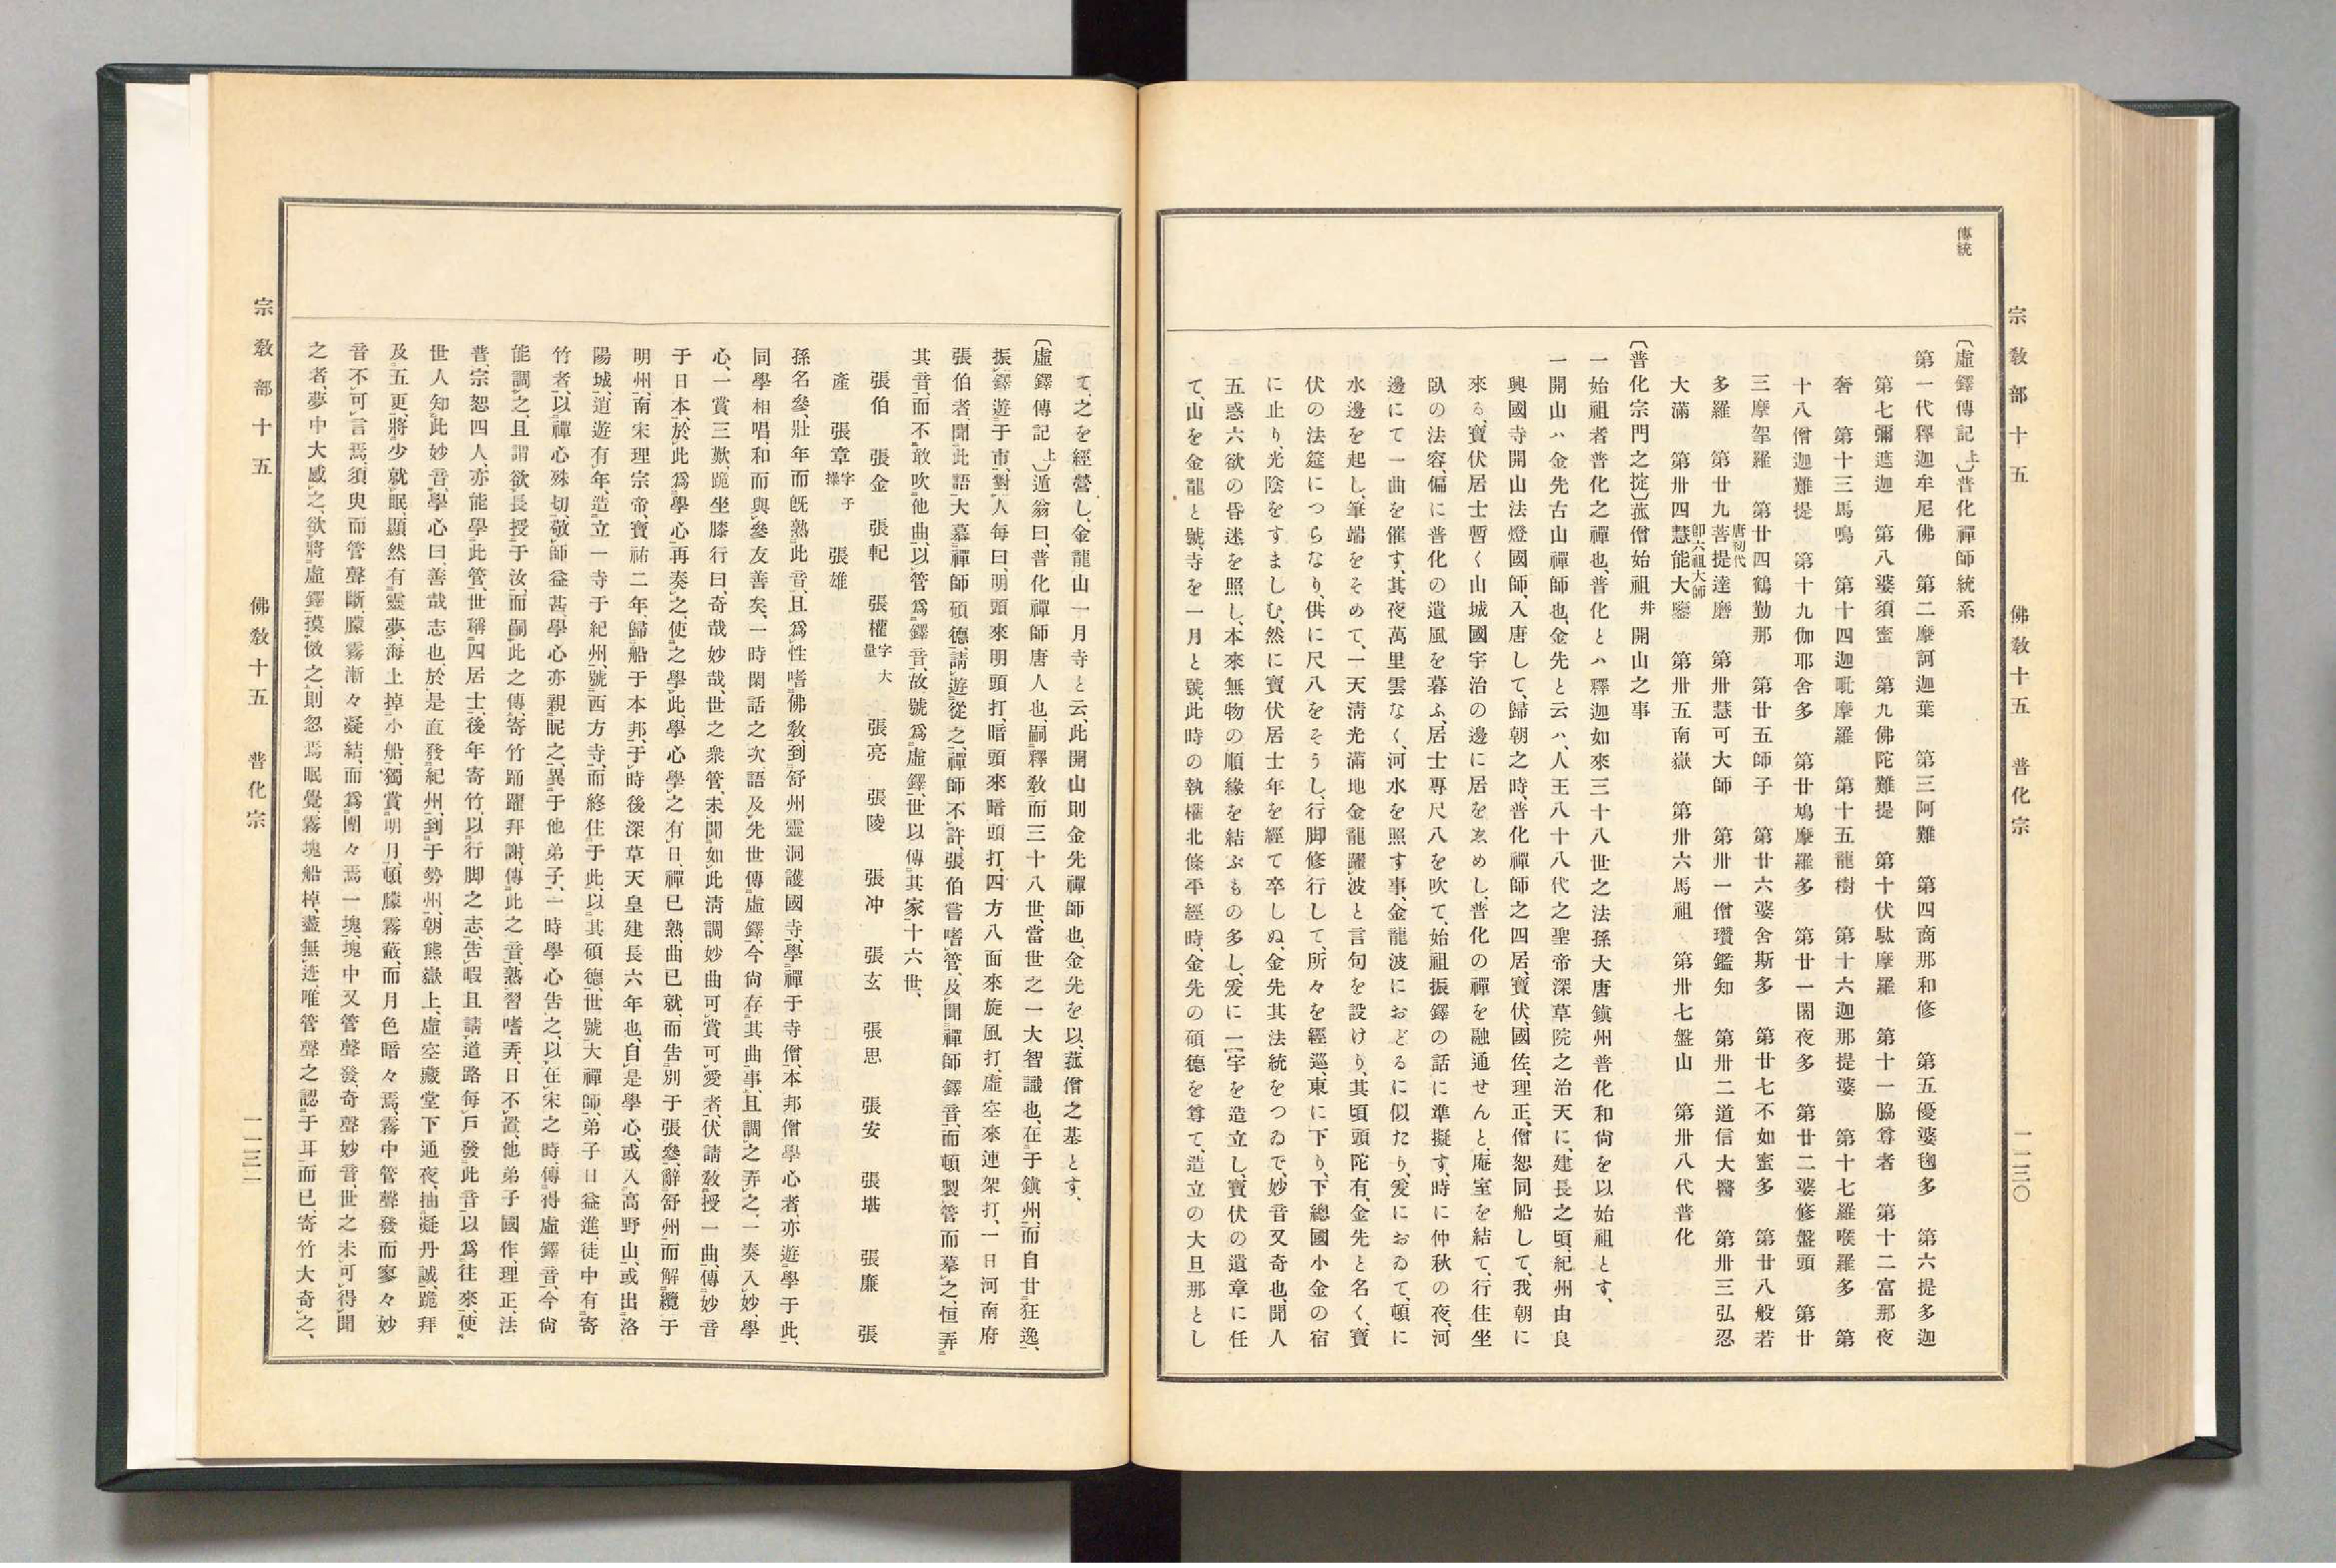 宗敎部十五　佛敎十五　普化宗　一一三〇
傳統
〔虛鐸傳記 上〕普化禪師統系
第一代釋迦牟尼佛　第二摩訶迦葉　第三阿難　第四商那和修　第五優婆毱多　第六提多迦
第七彌遮迦　第八婆須蜜　第九佛陀難提　第十伏馱摩羅　第十一脇尊者　第十二富那夜
奢　第十三馬鳴　第十四迦毗摩羅　第十五龍樹　第十六迦那提婆　第十七羅喉羅多　第
十八僧迦難提　第十九伽耶舍多　第廿鳩摩羅多　第廿一闍夜多　第廿二婆修盤頭　第廿
三摩拏羅　第廿四鶴勤那　第廿五師子　第廿六婆舍斯多　第廿七不如蜜多　第廿八般若
多羅　第廿九菩提達磨唐初代　第卅慧可大師　第卅一僧瓚鑑知　第卅二道信大醫　第卅三弘忍
大滿　第卅四慧能大鑒卽六祖大師　第卅五南嶽　第卅六馬祖　第卅七盤山　第卅八代普化
〔普化宗門之掟〕菰僧始祖幷開山之事
一始祖者普化之禪也、普化とハ釋迦如來三十八世之法孫大唐鎭州普化和尙を以始祖とす、
一開山ハ金先古山禪師也、金先と云ハ、人王八十八代之聖帝深草院之治天に、建長之頃、紀州由良
興國寺開山法燈國師、入唐して、歸朝之時、普化禪師之四居、寶伏、國佐、理正、僧恕同船して、我朝に
來る、寶伏居士暫く山城國宇治の邊に居をゑめし、普化の禪を融通せんと、庵室を結て、行住坐
臥の法容、偏に普化の遺風を暮ふ、居士專尺八を吹て、始祖振鐸の話に準擬す、時に仲秋の夜、河
邊にて一曲を催す、其夜萬里雲なく、河水を照す事、金龍波におどるに似たり、爰におゐて、頓に
水邊を起し、筆端をそめて、一天淸光滿地金龍躍波と言句を設けり、其頃頭陀有、金先と名く、寶
伏の法筵につらなり、供に尺八をそうし、行脚修行して、所々を經巡、東に下り、下總國小金の宿
に止り、光陰をすましむ、然に寶伏居士年を經て卒しぬ、金先其法統をつゐで、妙音又奇也、聞人
五惑六欲の昏迷を照し、本來無物の順緣を結ぶもの多し、爰に一宇を造立し、寶伏の遺章に任
て、山を金龍と號、寺を一月と號、此時の執權北條平經時、金先の碩德を尊て、造立の大旦那とし
て、之を經營し、金龍山一月寺と云、此開山則金先禪師也、金先を以、菰僧之基とす、
〔虛鐸傳記 上〕遁翁曰、普化禪師唐人也、嗣釋敎而三十八世、當世之一大智識也、在于鎭州、而自甘狂逸、
振鐸遊于市、對人每曰、明頭來明頭打、暗頭來暗頭打、四方八面來旋風打、虛空來連架打、一日河南府
張伯者、聞此語大慕禪師碩德、請遊從之、禪師不許、張伯嘗嗜管、及聞禪師鐸音、而頓製管而摹之、恒弄
其音、而不敢吹他曲、以管爲鐸音、故號爲虛鐸、世以傳其家十六世、
張伯　張金　張軺　張權字大量　張亮　張陵　張冲　張玄　張思　張安　張堪　張廉　張
產　張章字子操　張雄
孫名參、壯年而旣熟此音、且爲性嗜佛敎、到舒州靈洞護國寺、學禪于寺僧、本邦僧學心者、亦遊學于此、
同學相唱、和而與參友善矣、一時閑話之次、語及先世傳虛鐸、今尙存其曲事、且調之弄之、一奏入妙、學
心、一賞三歎、跪坐膝行曰、奇哉妙哉、世之衆管、未聞如此淸調妙曲可賞可愛者、伏請敎授一曲、傳妙音
于日本、於此爲學心再奏之、使之學此、學心學之有日、禪已熟、曲已就、而告別于張參、辭舒州而解纜于
明州、南宋理宗帝、寶祐二年歸船于本邦、于時後深草天皇建長六年也、自是學心、或入高野山、或出洛
陽城、逍遊有年、造立一寺于紀州、號西方寺、而終住于此、以其碩德、世號大禪師、弟子日益進徒中有寄
竹者、以禪心殊切、敬師益甚、學心亦親眤之、異于他弟子、一時學心告之、以在宋之時、傳得虛鐸音、今尙
能調之、且謂欲長授于汝、而嗣此之傳、寄竹踊躍拜謝、傳此之音、熟習嗜弄、日不置、他弟子國作、理正、法
普、宗恕四人、亦能學此管、世稱四居士、後年寄竹、以行脚之志、告暇且請道路每戶發此音、以爲往來、使
世人知此妙音、學心曰、善哉志也、於是直發紀州、到于勢州、朝熊嶽上、虛空藏堂下通夜、抽凝丹誠、跪拜
及五更、將少就眠、顯然有靈夢、海上掉小船、獨賞明月、頓朦霧蔽、而月色暗々焉、霧中管聲發而寥々妙
音不可言焉、須臾而管聲斷、朦霧漸々凝結、而爲團々焉一塊、塊中又管聲發、奇聲妙音、世之未可得聞
之者、夢中大感之、欲將虛鐸摸倣之、則忽焉眠覺、霧塊船棹、盡無迹、唯管聲之認于耳而已、寄竹大奇之、
宗敎部十五　佛敎十五　普化宗　一一三一